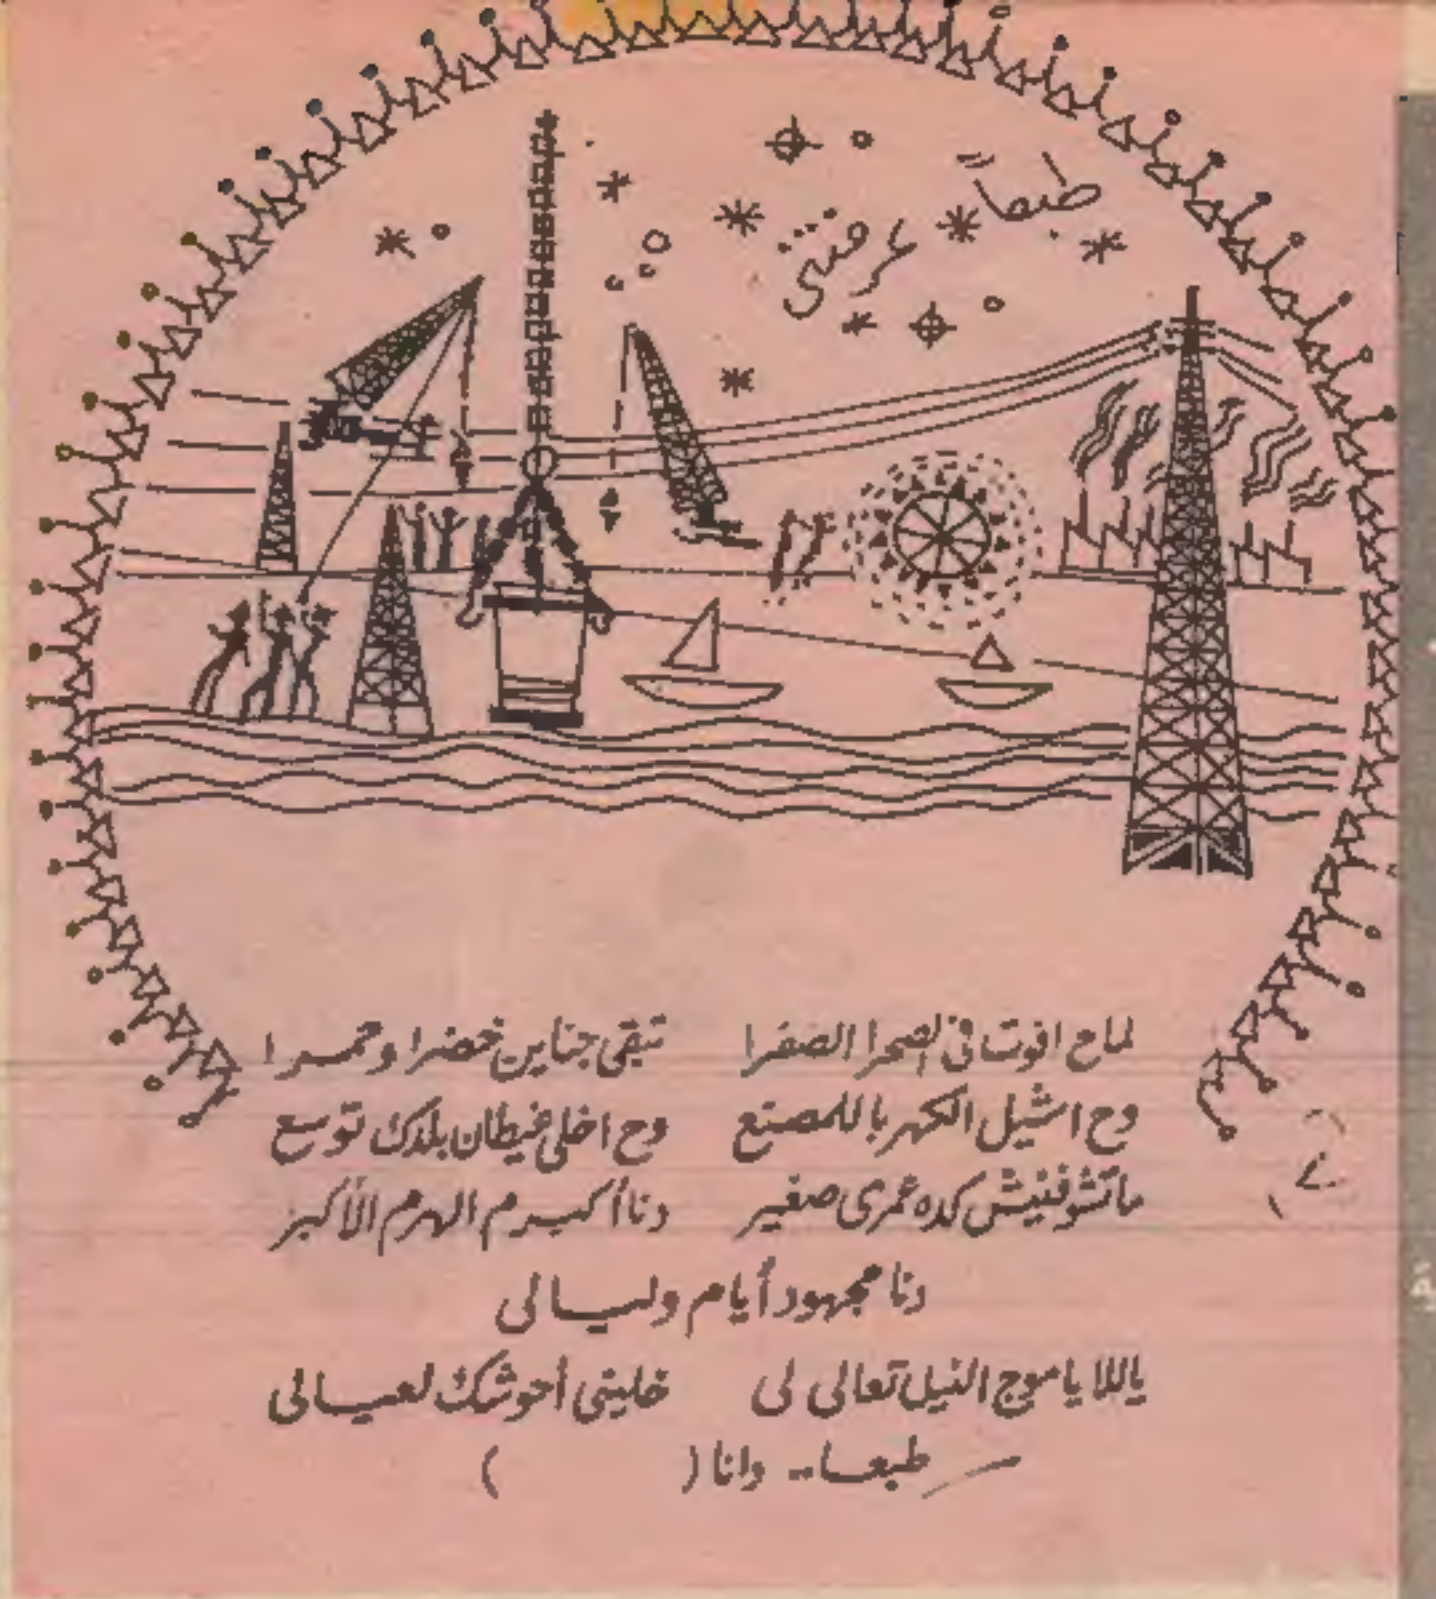 طبعاً
عرفتني
لما ح افوت فى الصحرا الصفرا تبقى جناين خضرا وحمرا
وح اشيل الكهربا للمصنع وح اخلى غيطان بلدك توسع
ماتشوفنيش كده عمرى صغير دنا أكبر م الهرم الأكبر
دنا مجهود أيام وليالى
ياللا ياموج النيل تعالى لى خلينى أحوشك لعيالى
طبعا.. وانا ( )